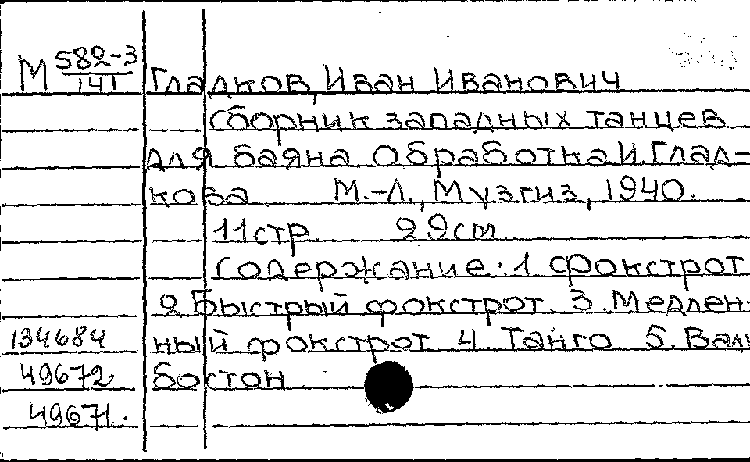 М 582-3/141 Гладков, Иван Иванович
Сборник западных танцев
для баяна Обработка И. Глад-
кова М.-Л., Музгиз, 1940.
11 стр. 29 cm
Содержание: 1. Фокстрот
2. Быстрый фокстрот. 3. Медлен-
134684 ный фокстрот 4. Танго 5. Валь
49672 бостон
49671.